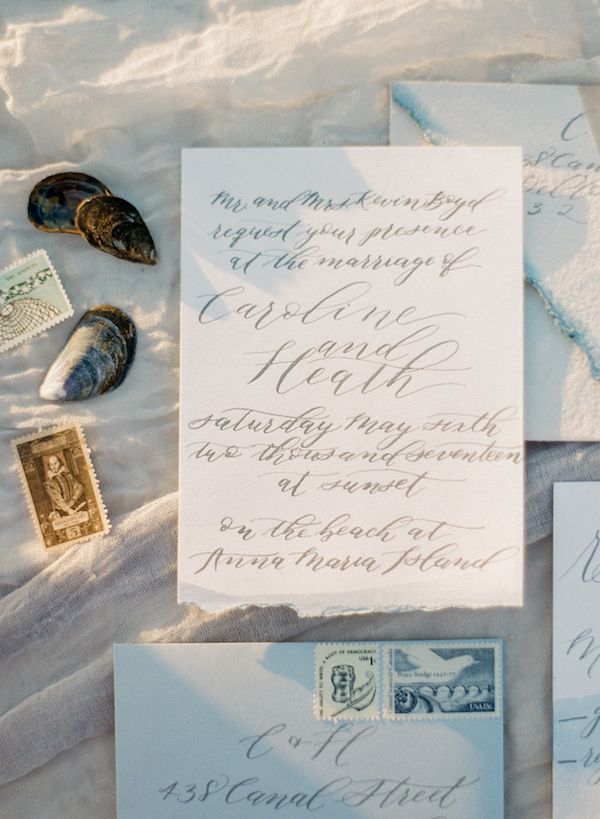 Mr. and Mrs. Kevin Boyd
request your presence
at the marriage of
Caroline
and
Heath
saturday may sixth
two thousand seventeen
at sunset
on the beach at
Anna Maria Island
C
32
5
A ROOT OF DEMOCRACY
USA 1c
United States and Canada
Peace Bridge 1927-77
USA 13c
C & H
438 Canal Street